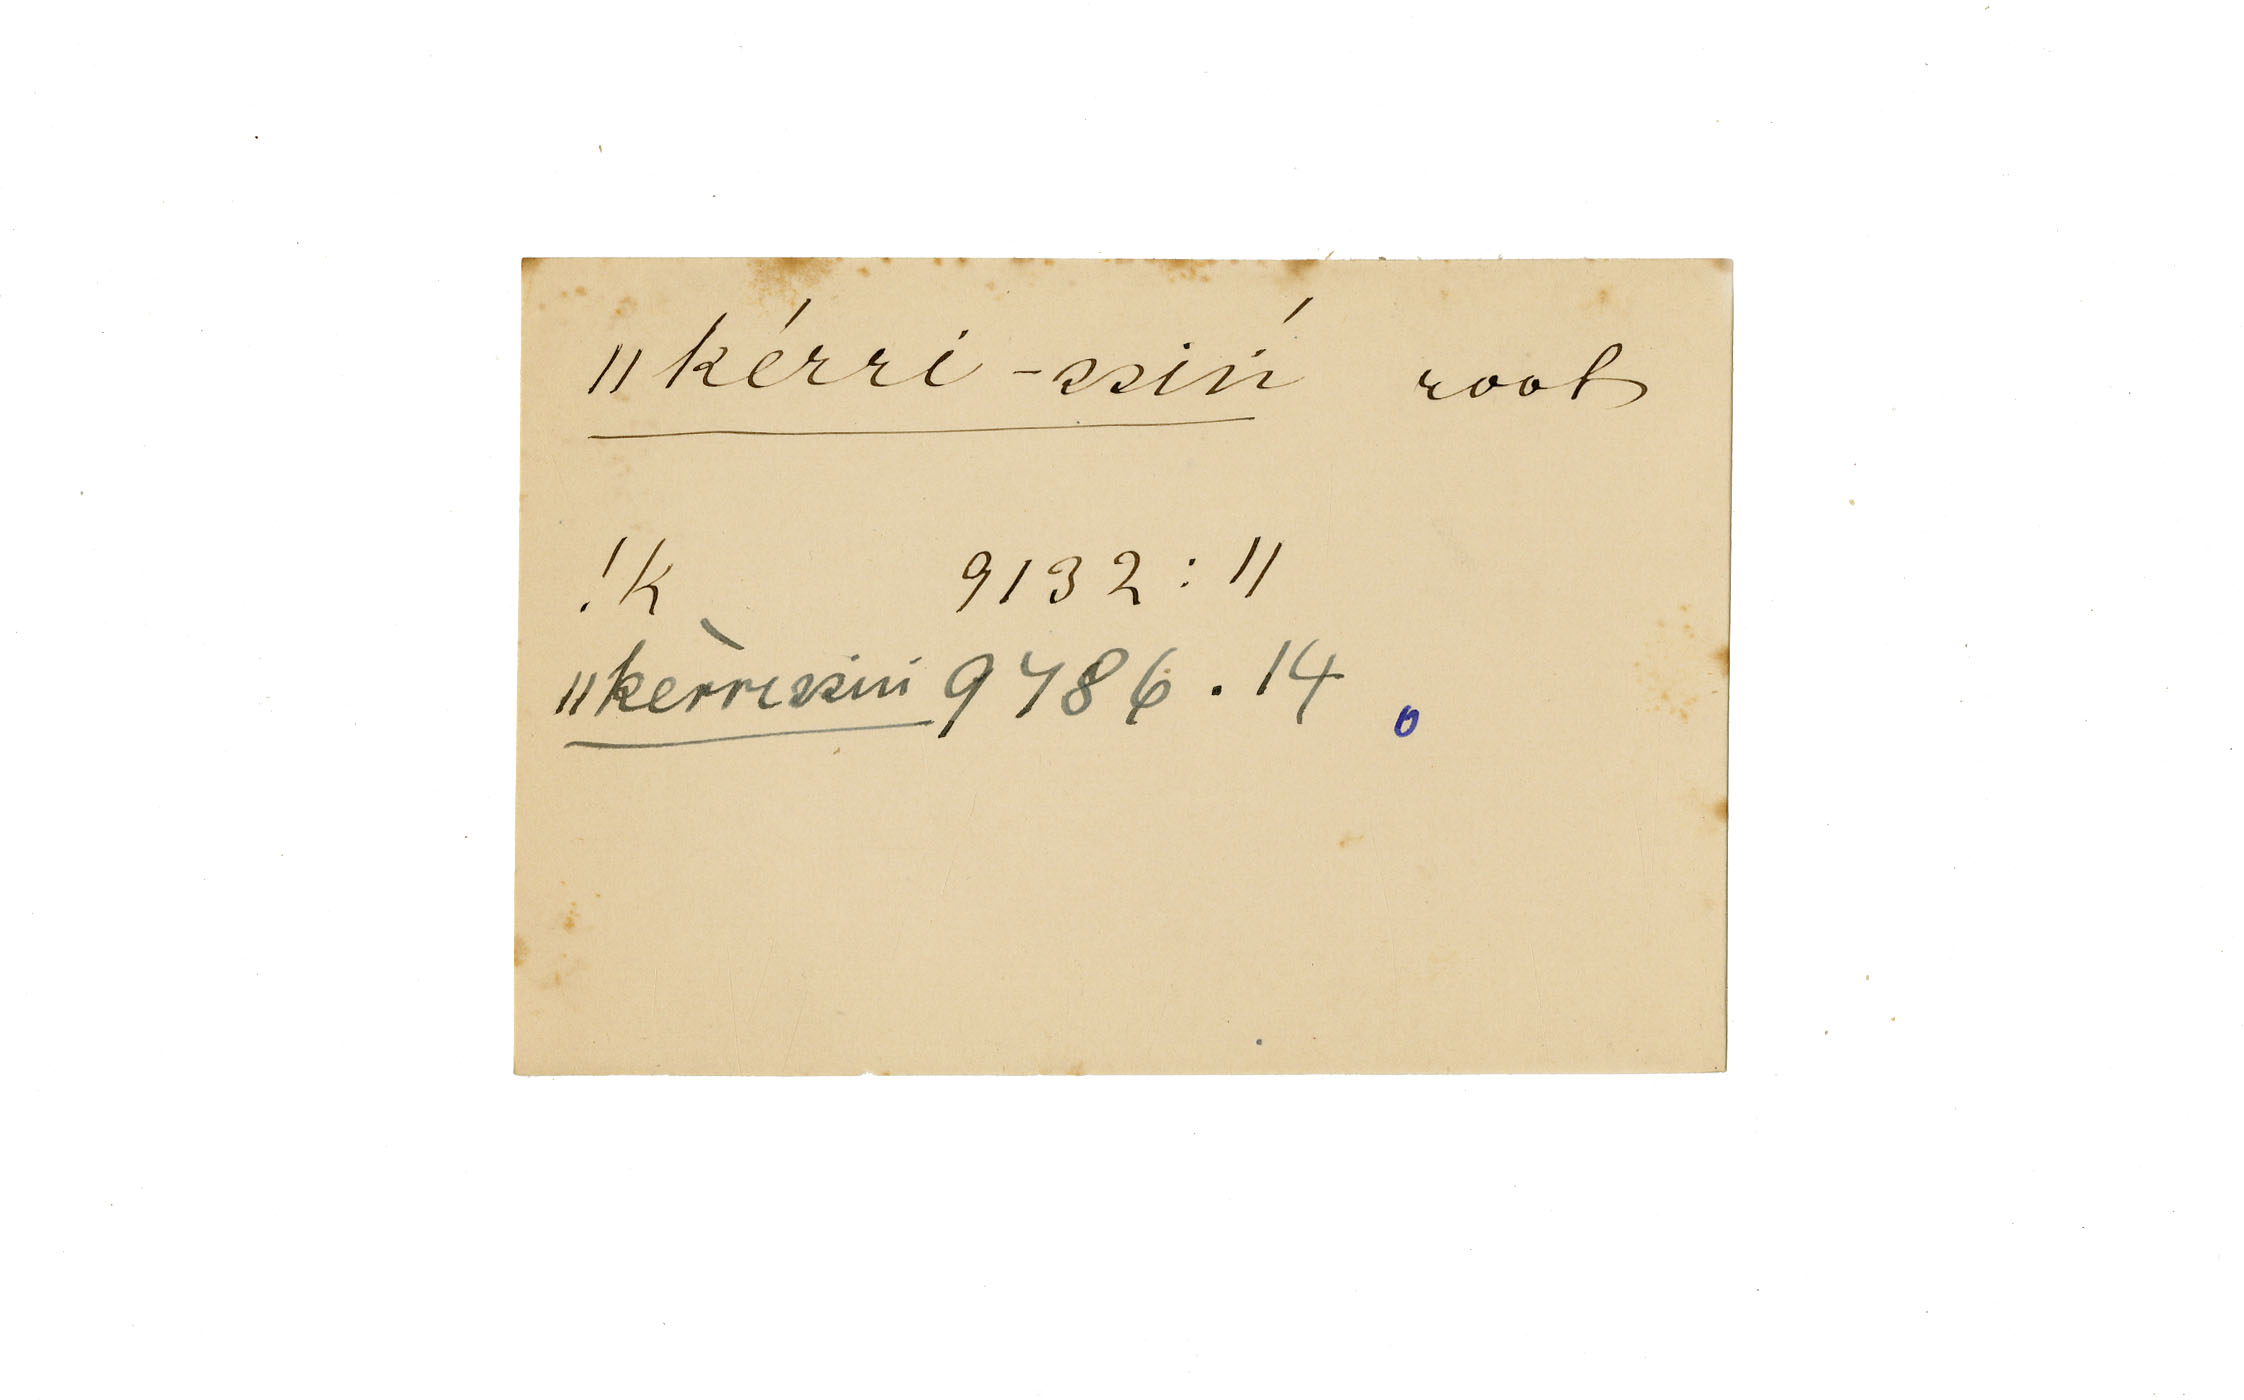 ǁkérri-ssiń root
!k 9132:11
ǁkèrrissiń 9486.14